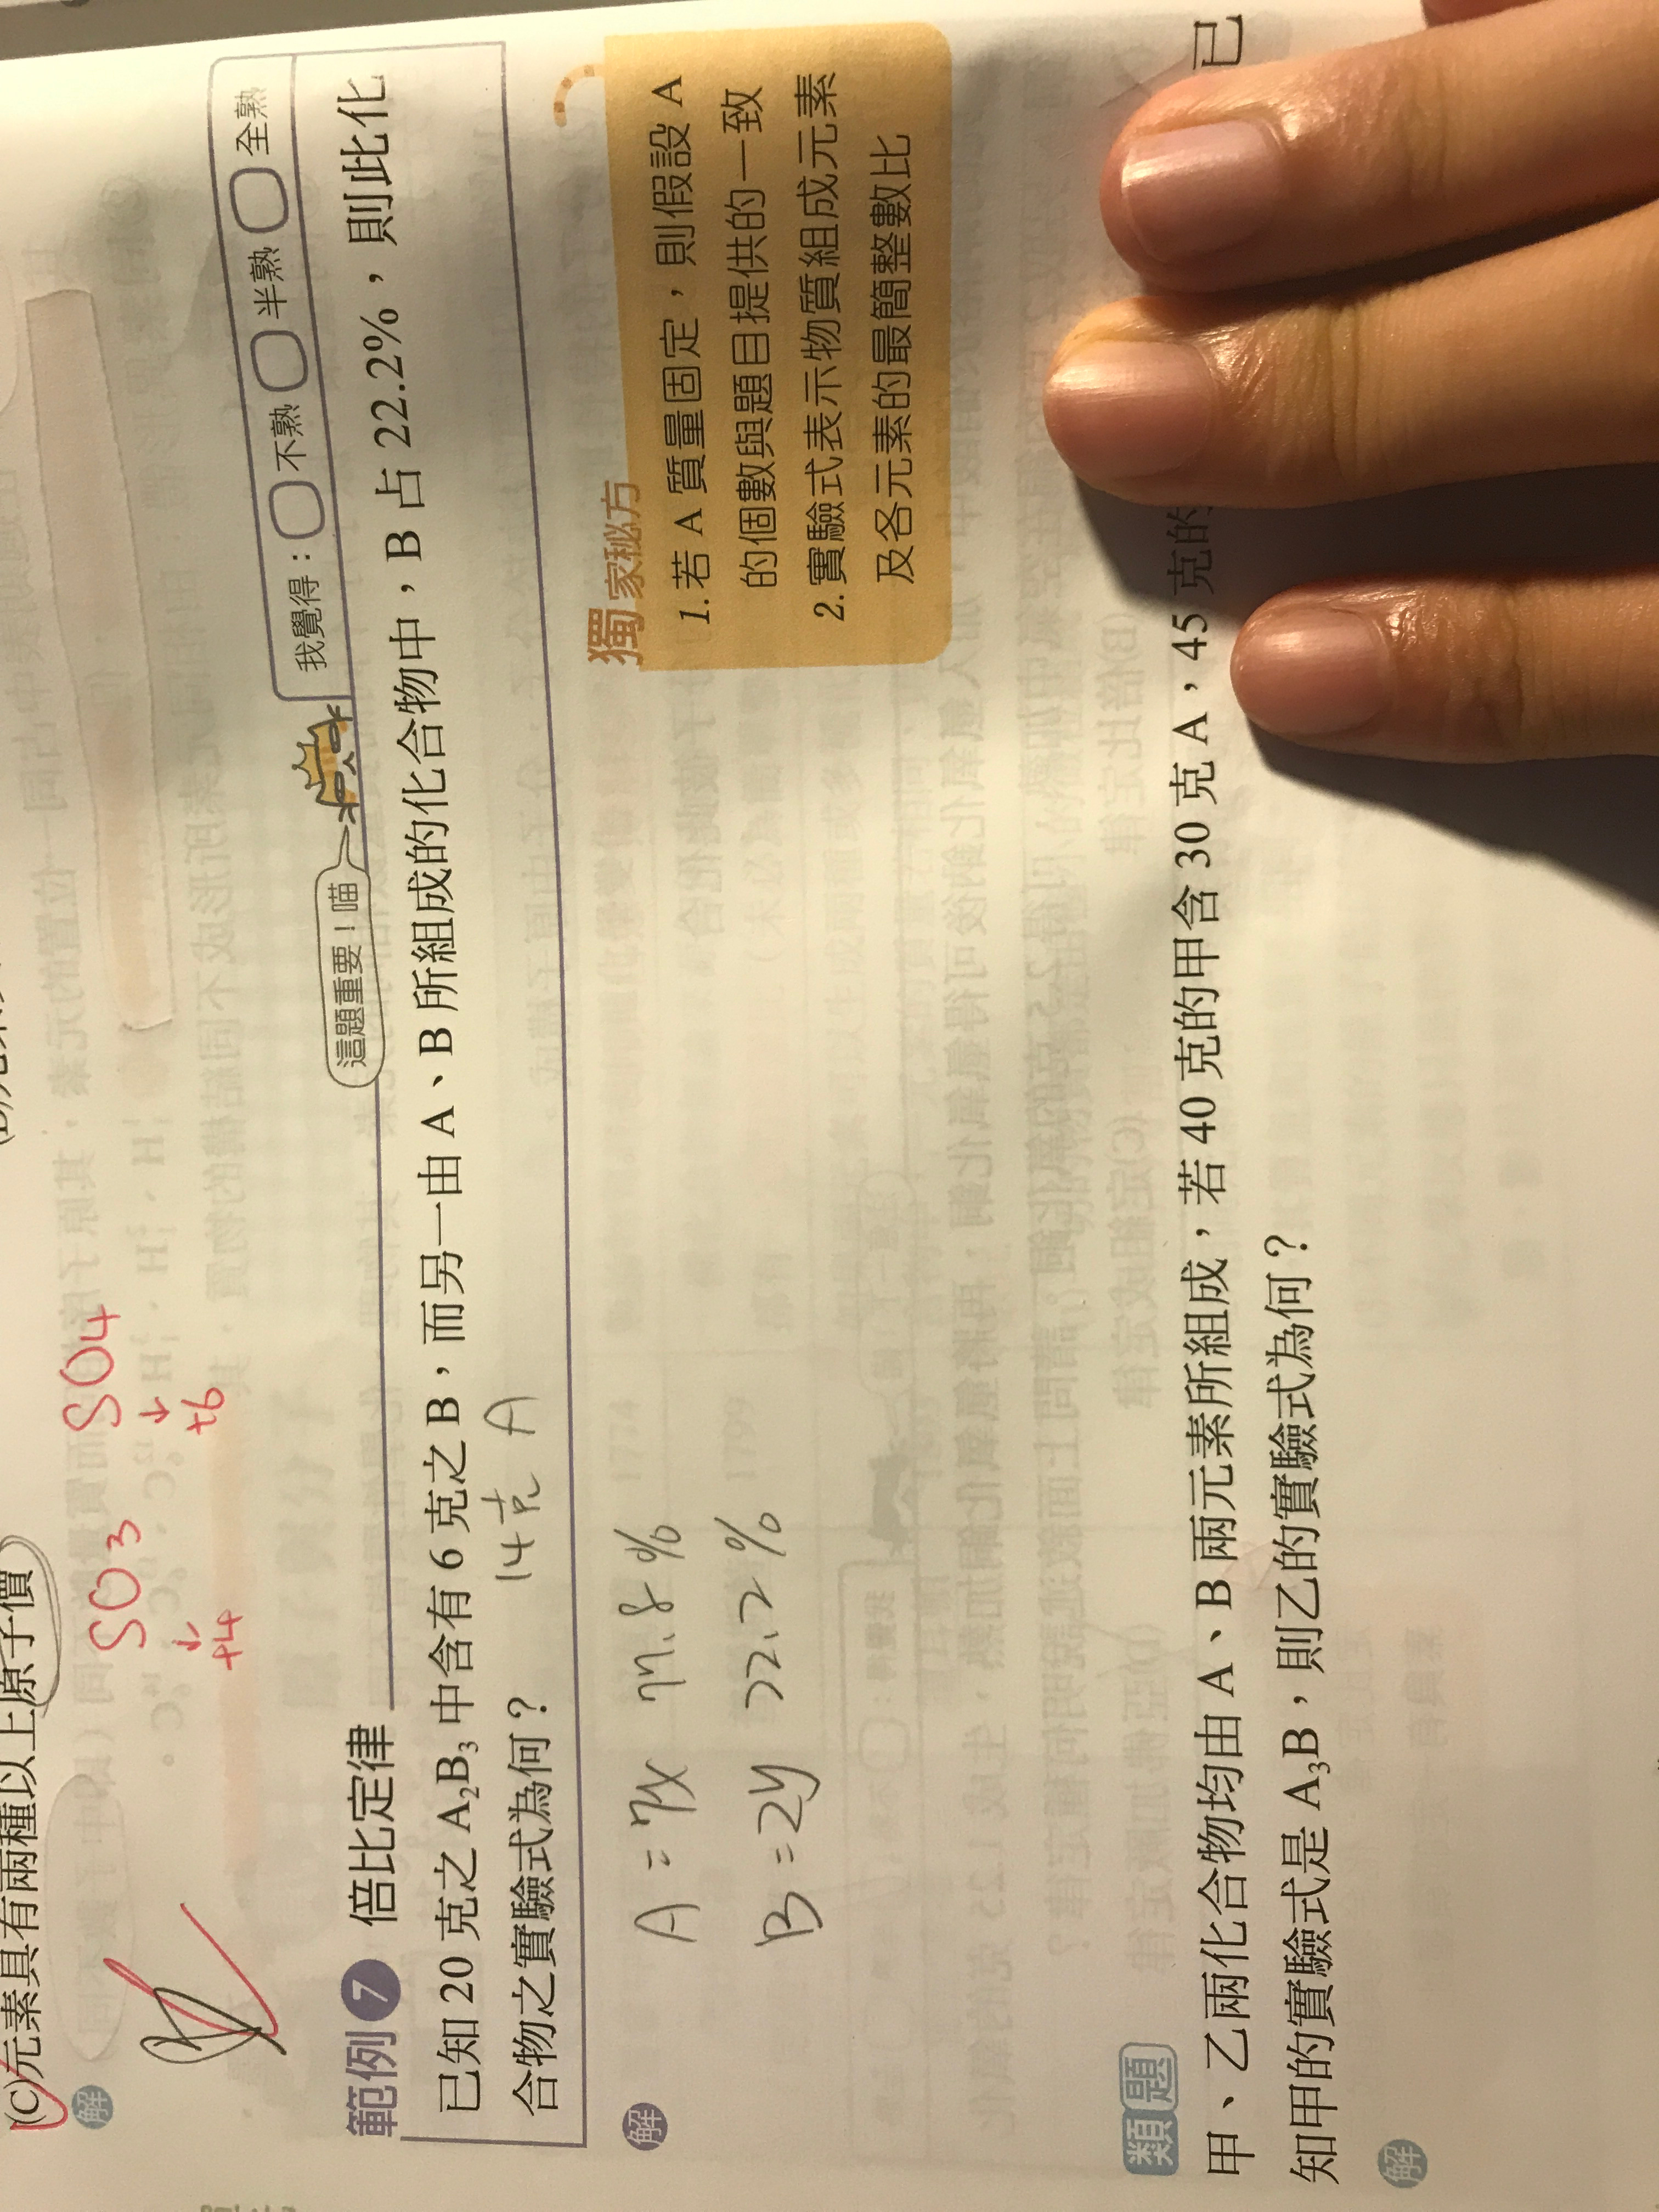 (C)元素具有兩種以上原子價
SO3 SO4
↓ ↓
+4 +6
解
範例 7 倍比定律
這題重要！喵
我覺得：不熟 半熟 全熟
已知 20 克之 A₂B₃ 中含有 6 克之 B，而另一由 A、B 所組成的化合物中，B 占 22.2%，則此化
14克 A
合物之實驗式為何？
解
A = 7x 77.8%
B = 2y 22.2%
獨家秘方
1. 若 A 質量固定，則假設 A
的個數與題目提供的一致
2. 實驗式表示物質組成元素
及各元素的最簡整數比
類題
甲、乙兩化合物均由 A、B 兩元素所組成，若 40 克的甲含 30 克 A，45 克的 已
知甲的實驗式是 A₃B，則乙的實驗式為何？
解